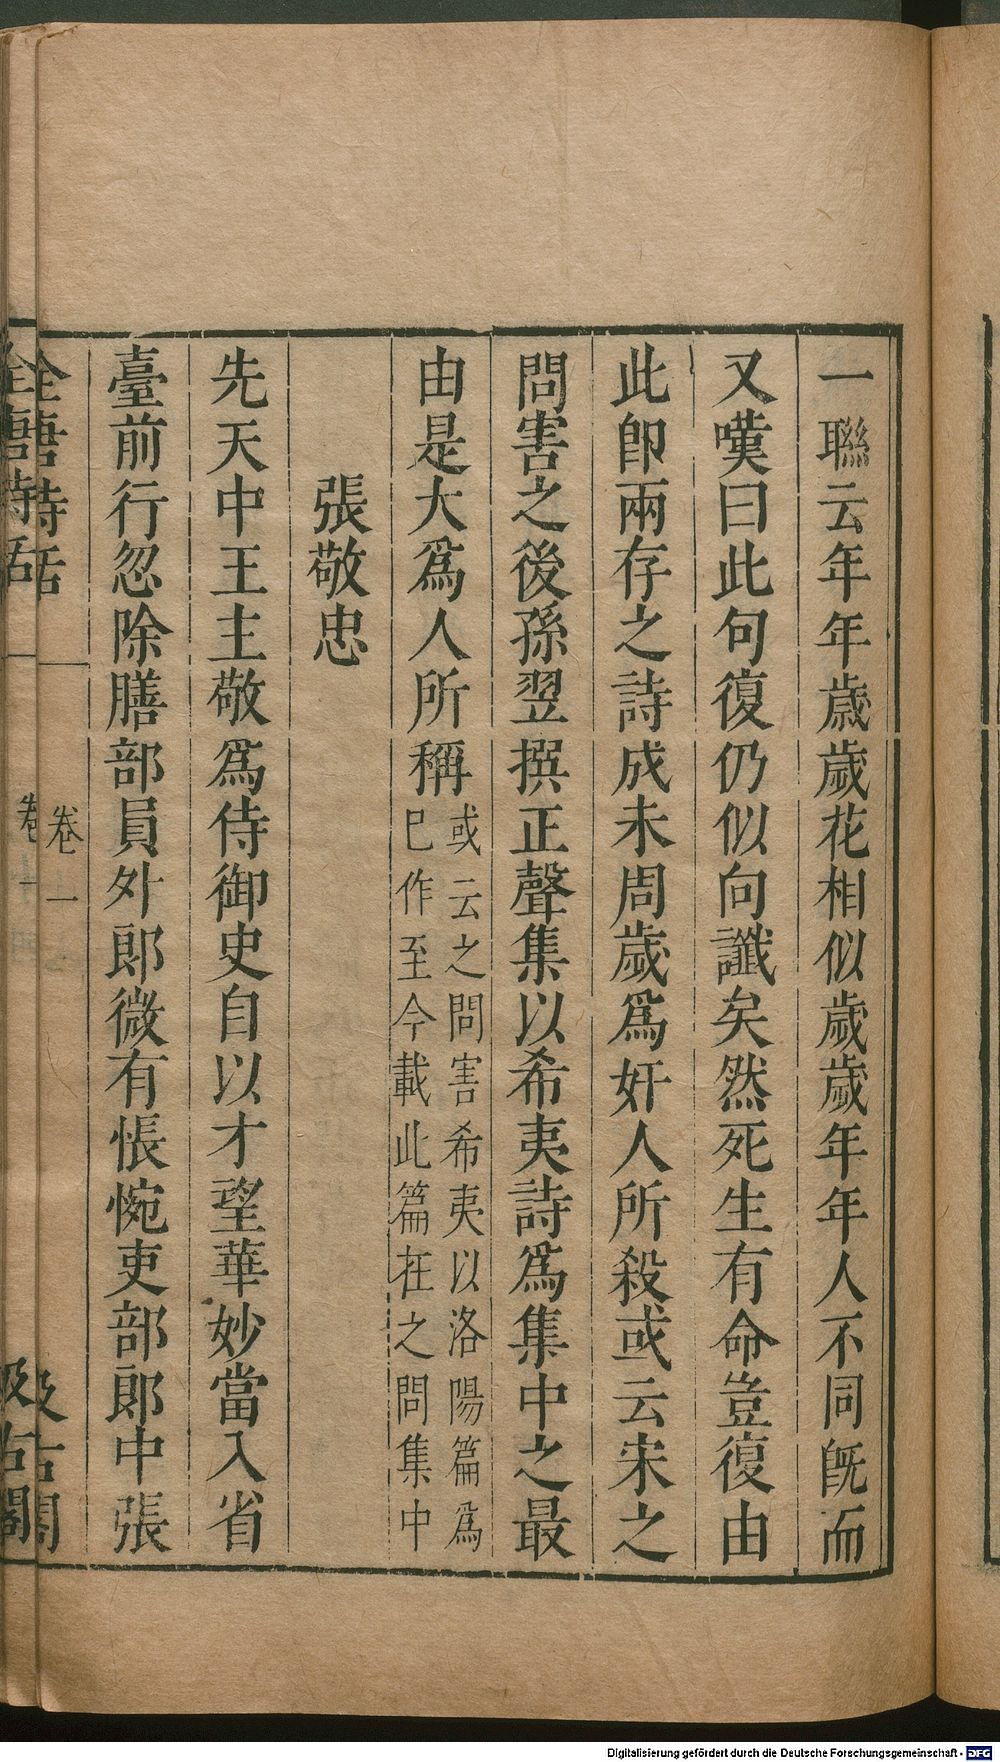 一聯云年年歲歲花相似歲歲年年人不同旣而
又嘆曰此句復仍似向讖矣然死生有命豈復由
此卽兩存之詩成未周歲爲奸人所殺或云宋之
問害之後孫翌撰正聲集以希夷詩爲集中之最
由是大爲人所稱或云之問害希夷以洛陽篇爲
巳作至今載此篇在之問集中
張敬忠
先天中王主敬爲侍御史自以才望華妙當入省
臺前行忽除膳部員外郎微有悵惋吏部郎中張
全唐詩話 卷一 汲古閣
全唐詩話 卷一 汲古閣
Digitalisierung gefördert durch die Deutsche Forschungsgemeinschaft - DFG